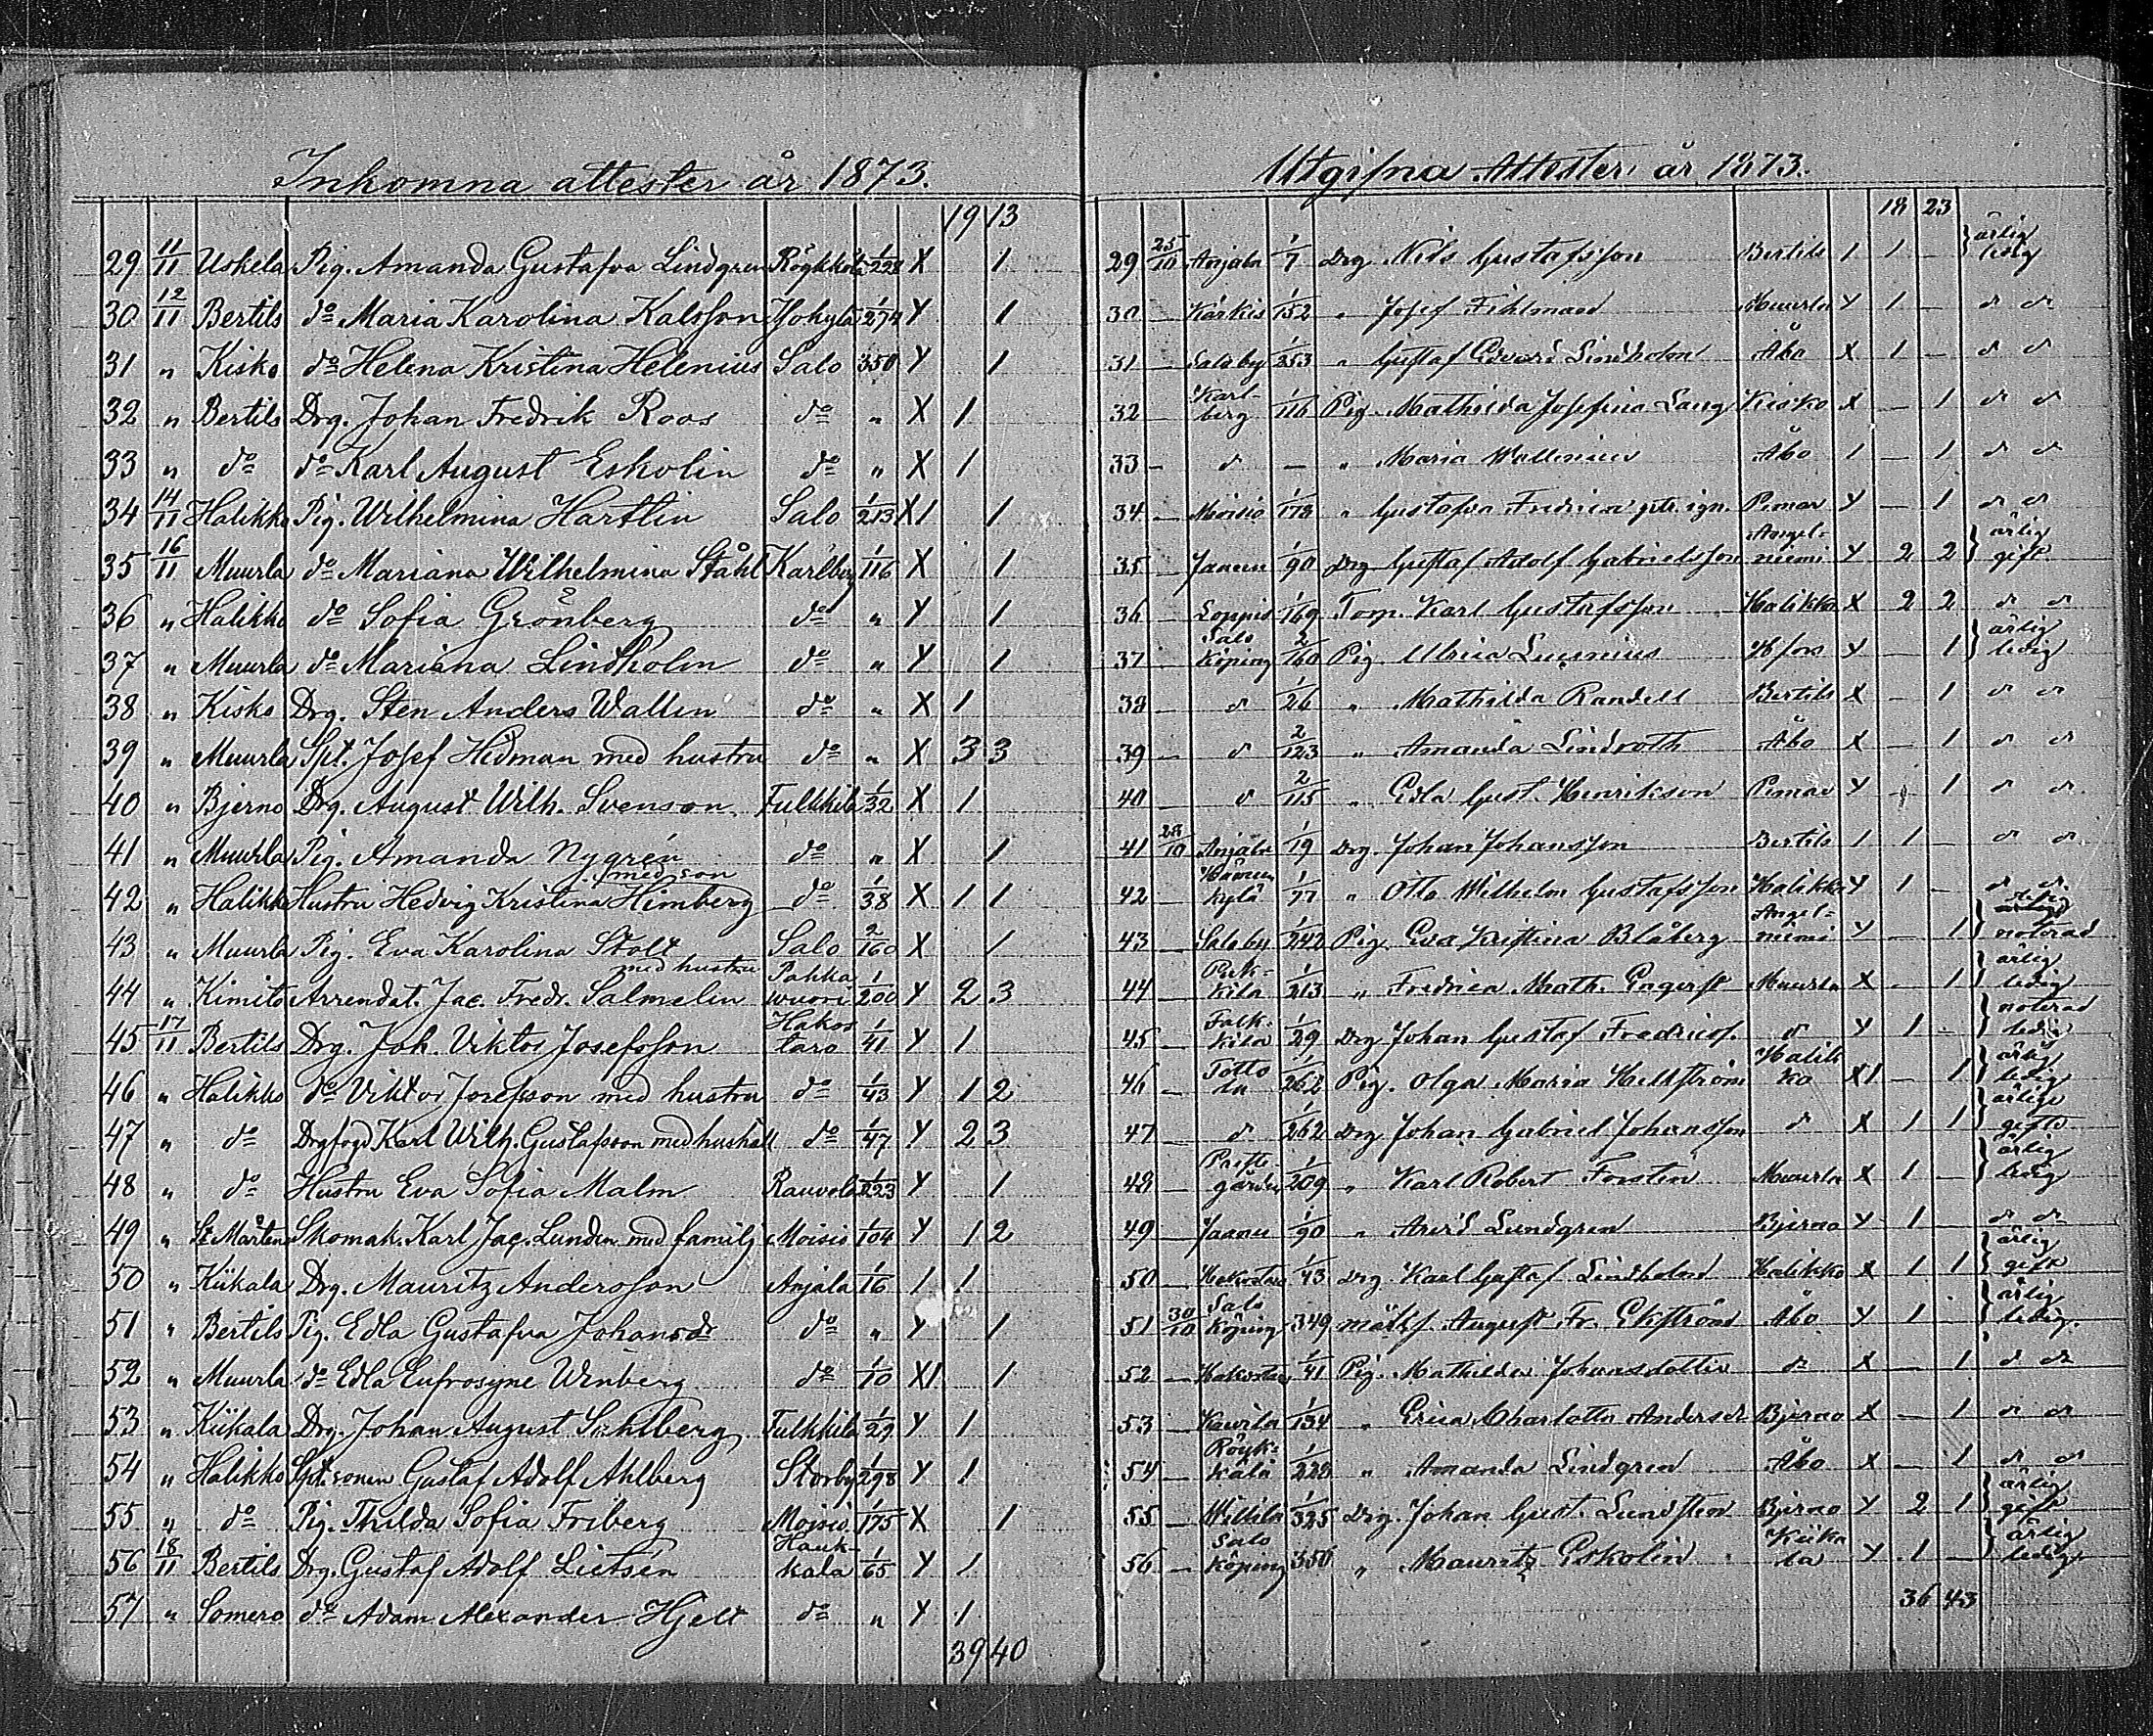 Inkomna attester år 1873.
19 13
29 11/11 Uskela Pig. Amanda Gustafva Lindgren Röykkölä 1/228 X 1
30 12/11 Bertils do Maria Karolina Kalsson 1/274 Y 1
31 " Kisko do Helena Kristina Helenius Salo 350 Y 1
32 " Bertils Drg. Johan Fredrik Roos do " X 1
33 " do do Karl August Eskolin do " X 1
34 14/11 Halikko Pig. Wilhelmina Hartlin Salo 1/213 XI 1
35 16/11 Muurla do Mariana Wilhelmina Ståhl Karlberg 1/116 X 1
36 " Halikko do Sofia Grönberg do " Y 1
37 " Muurla do Mariana Lindholm do " Y 1
38 " Kisko Drg. Sten Anders Wallin do " X 1
39 " Muurla Spt. Josef Hidman med hustru do " X 3 3
40 " Bjerno Drg. August Wilh. Svenson Fulkkila 1/32 X 1
41 " Muurla Pig. Amanda Nygrén do " X 1
42 " Halikko Hustru Hedvig Kristina Himberg med son do 1/38 X 1 1
43 " Muurla Pig. Eva Karolina Stolt Salo 2/160 X 1
44 " Kimito Arrendat. Jac. Fredr. Salmelin med hustru Pahka wuori 1/200 Y 2 3
45 17/11 Bertils Drg. Joh. Viktor Josefsson Hakos taro 1/41 Y 1
46 " Halikko do Viktor Josefsson med hustru do 1/43 Y 1 2
47 " do Drgfogd Karl Wilh. Gustafsson med hushåll do 1/47 Y 2 3
48 " do Hustru Eva Sofia Malm Rauvola 1/223 Y 1
49 " St Mårtens Skomak. Karl Jac. Lunden med familj Moisio 1/104 Y 1 2
50 " Kiikala Drg. Mauritz Andersson Anjala 1/16 1 1
51 " Bertils Pig. Edla Gustafva Johansdr do " Y 1
52 " Muurla do Edla Eufrosyne Winberg do 1/10 XI 1
53 " Kiikala Drg. Johan August Sahlberg Fulkkila 1/29 Y 1
54 " Halikko Spt. sonen Gustaf Adolf Ahlberg Storby 1/298 Y 1
55 " do Pig. Thilda Sofia Friberg Moisio 1/175 X 1
56 18/11 Bertils Drg. Gustaf Adolf Lietsén Hauk- kala 1/65 Y 1
57 " Somero do Adam Alexander Hjelt do " Y 1
39 40
Utgifna Attester år 1873.
18 23
29 25/10 Anjala 1/7 Drg Nils Gustafsson Bertils 1 1 — } ärlig ledig
30 — Kärkis 1/152 " Josef Fihlman Muurla Y 1 — d d
31 — Salo by 1/253 " Gustaf Edvard Lindholm Åbo X 1 — d d
32 — Karl- berg 1/116 Pig. Mathilda Josefina Lang Kisko X — 1 d d
33 — d — " Maria Wallenius Åbo 1 — 1 d d
34 — Moisio 1/178 " Gustafva Fredrica Pemar Y — 1 d d
35 — Jaanu 1/90 Drg Gustaf Adolf Gabrielsson Angel- niemi Y 2 2 } ärlig gift
36 — Loppis 1/169 Tom. Karl Gustafsson Halikko X 2 2 d d
37 — Salo Köping 2/160 Pig. Ulrica H:fors Y — 1 } ärlig ledig
38 — d 2/26 " Mathilda Randell Bertils X — 1 d d
39 — d 2/123 " Amanda Lindroth Åbo X — 1 d d
40 — d 2/115 " Edla Gust. Henrikson Pemar Y — 1 d d
41 28/10 Anjala 1/19 Drg. Johan Johansson Bertils 1 1 — d d
42 — kylä 1/77 " Otto Wilhelm Gustafsson Halikko Y 1 — d d
43 — Salo by 1/242 Pig. Eva Kristina Blåberg Angel- niemi Y 1 } noterad
44 — Puk- kila 1/213 " Fredrica Math. Muurla X — 1 } ärlig ledig
45 — Fulk- kila 1/29 Drg Johan Gustaf Fredricsf. d Y 1 — } noterad ledig
46 — Totto la 1/262 Pig. Olga Maria Hellström Halik ko XI — 1 } ärlig ledig
47 — d 1/262 Drg Johan Gabriel Johansson d X 1 1 } ärlige gifte
48 — Prest- gården 1/209 " Karl Robert Forstén Muurla X 1 — } ärlig ledig
49 — Jaanu 1/90 " Arvid Lundgren Bjerno Y 1 — d d
50 — Hakostaro 1/43 Drg Karl Gustaf Lindholm Halikko X 1 1 } ärlig gift
51 30/10 Salo Köping 349 August Fr. Ekström Åbo Y 1 — } ärlig ledig.
52 — Hakostaro 1/41 Pig. Mathilda Johansdotter d X — 1 d d
53 — Kavila 1/134 " Erica Charlotta Andersdr Bjerno X — 1 d d
54 — Röyk- kälä 1/228 " Amanda Lindgren Åbo X — 1 d d
55 — Willila 1/325 Drg. Johan Gust. Lundsten Bjerno Y 2 1 } ärlig gift
56 — Salo Köping 350 " Mauritz Eskolin Kiika la Y 1 — } ärlig ledig
36 43